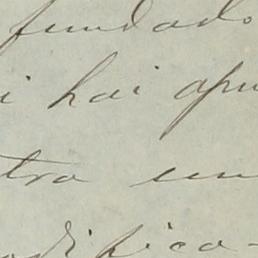 fundado
i hai apu
tra un
difica-